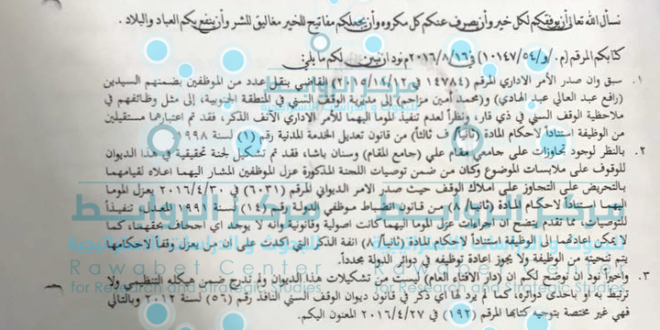 نسأل الله تعالى أن يوفقكم لكل خير وأن يصرف عنكم كل مكروه وأن يجعلكم مفاتيح للخير مغاليق للشر وأن ينفع بكم العباد والبلاد .
كتابكم المرقم (م . /و/١٠١٤٧/٥٤) في ٢٠١٦/٨/١٦م نود ان نبين لكم ما يلي:
١. سبق وان صدر الأمر الاداري المرقم (١٤٧٨٤) في ٢٠١٥/١٨/١٢ القاضي بنقل عدد من الموظفين بضمنهم السيدين
(رافع عبد العالي عبد الهادي) و(محمد أمين مزاحم) إلى مديرية الوقف السني في المنطقة الجنوبية، إلى مثل وظائفهم في
ملاحظية الوقف السني في ذي قار، ونظراً لعدم تنفيذ الموما اليهما للأمر الاداري الآنف الذكر، فقد تم اعتبارهما مستقيلين
من الوظيفة استناداً لاحكام المادة (ثانياً/ ف ثالثاً) من قانون تعديل الخدمة المدنية رقم (١) لسنة ١٩٩٨
٢. بالنظر لوجود تجاوزات على جامعي مقام علي (جامع المقام) وسنان باشا، فقد تم تشكيل لجنة تحقيقية في هذا الديوان
للوقوف على ملابسات الموضوع وكان من ضمن توصيات اللجنة المذكورة عزل الموظفين المشار اليهما اعلاه لقيامهما
بالتحريض على التجاوز على املاك الوقف حيث صدر الامر الديواني المرقم (٦٠٣١) في ٢٠١٦/٤/٣٠ بعزل الموما
اليهما استناداً لاحكام المادة (٨/ثانياً) من قانون انضباط موظفي الدولة رقم (١٤) لسنة ١٩٩١ المعدل تنفيذاً
للتوصيات مما تقدم يتضح ان اجراءات عزل الموما اليهما كانت اصولية وقانونية وانه لا يوجد اي اجحاف بحقهما، كما
لا يمكن إعادتهما إلى الوظيفة استناداً لأحكام المادة (ثانياً/٨) انفة الذكر التي اكدت على ان من يعزل وفقاً لاحكامها
يتم تنحيته من الوظيفة ولا يجوز إعادة توظيفه في دوائر الدولة مجدداً.
٣. وأخيراً نود ان نوضح لكم ان (دار الافتاء العام) ليست من ضمن تشكيلات هذا الديوان ولا تندرج ضمن هيكله التنظيمي ولا
ترتبط به او باحدى دوائره، كما لم يرد لها اي ذكر في قانون ديوان الوقف السني النافذ رقم (٥٦) لسنة ٢٠١٢ وبالتالي
فهي غير مختصة بتوجيه كتابها المرقم (١٩٢) في ٢٠١٦/٤/٢٧ المعنون اليكم.
مركز الروابط
للبحوث والدراسات الاستراتيجية
Rawabet Center
for Research and Strategic Studies